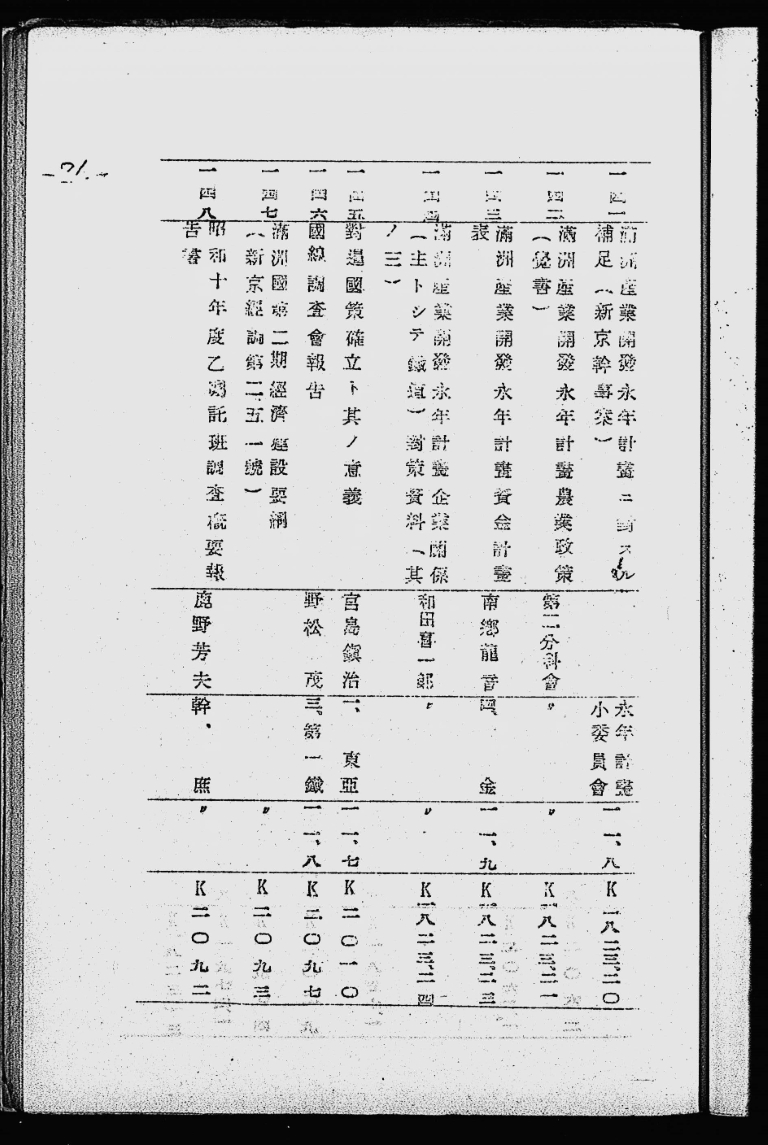 一四一
満洲産業開發永年計畫ニ對スル
補足(新京幹事案)
永年計畫
小委員會
一一、八
K一八二三、二〇
一四二
満洲産業開發永年計畫農業政策
(覺書)
第二分科會
〃
〃
K一八二三、二一
一四三
満洲産業開發永年計畫資金計畫
表
南郷龍音
四、金
一一、九
K一八二三、二三
一四四
満洲産業開發永年計畫企業關係
(主トシテ鐵道)對策資料(其
ノ三)
和田喜一郎
〃
〃
K一八二三、二四
一四五
對邊國策確立ト其ノ意義
宮島鎭治
一、東亞
一一、七
K二〇一〇
一四六
國線調査會報告
野松茂
三、第一鐵
一一、八
K二〇九七
一四七
満洲國第二期經濟建設要綱
(新京經調第二五一號)
〃
K二〇九三
一四八
昭和十年度乙囑託班調査概要報
告書
鹿野芳夫
幹、庶
〃
K二〇九二
-21.-